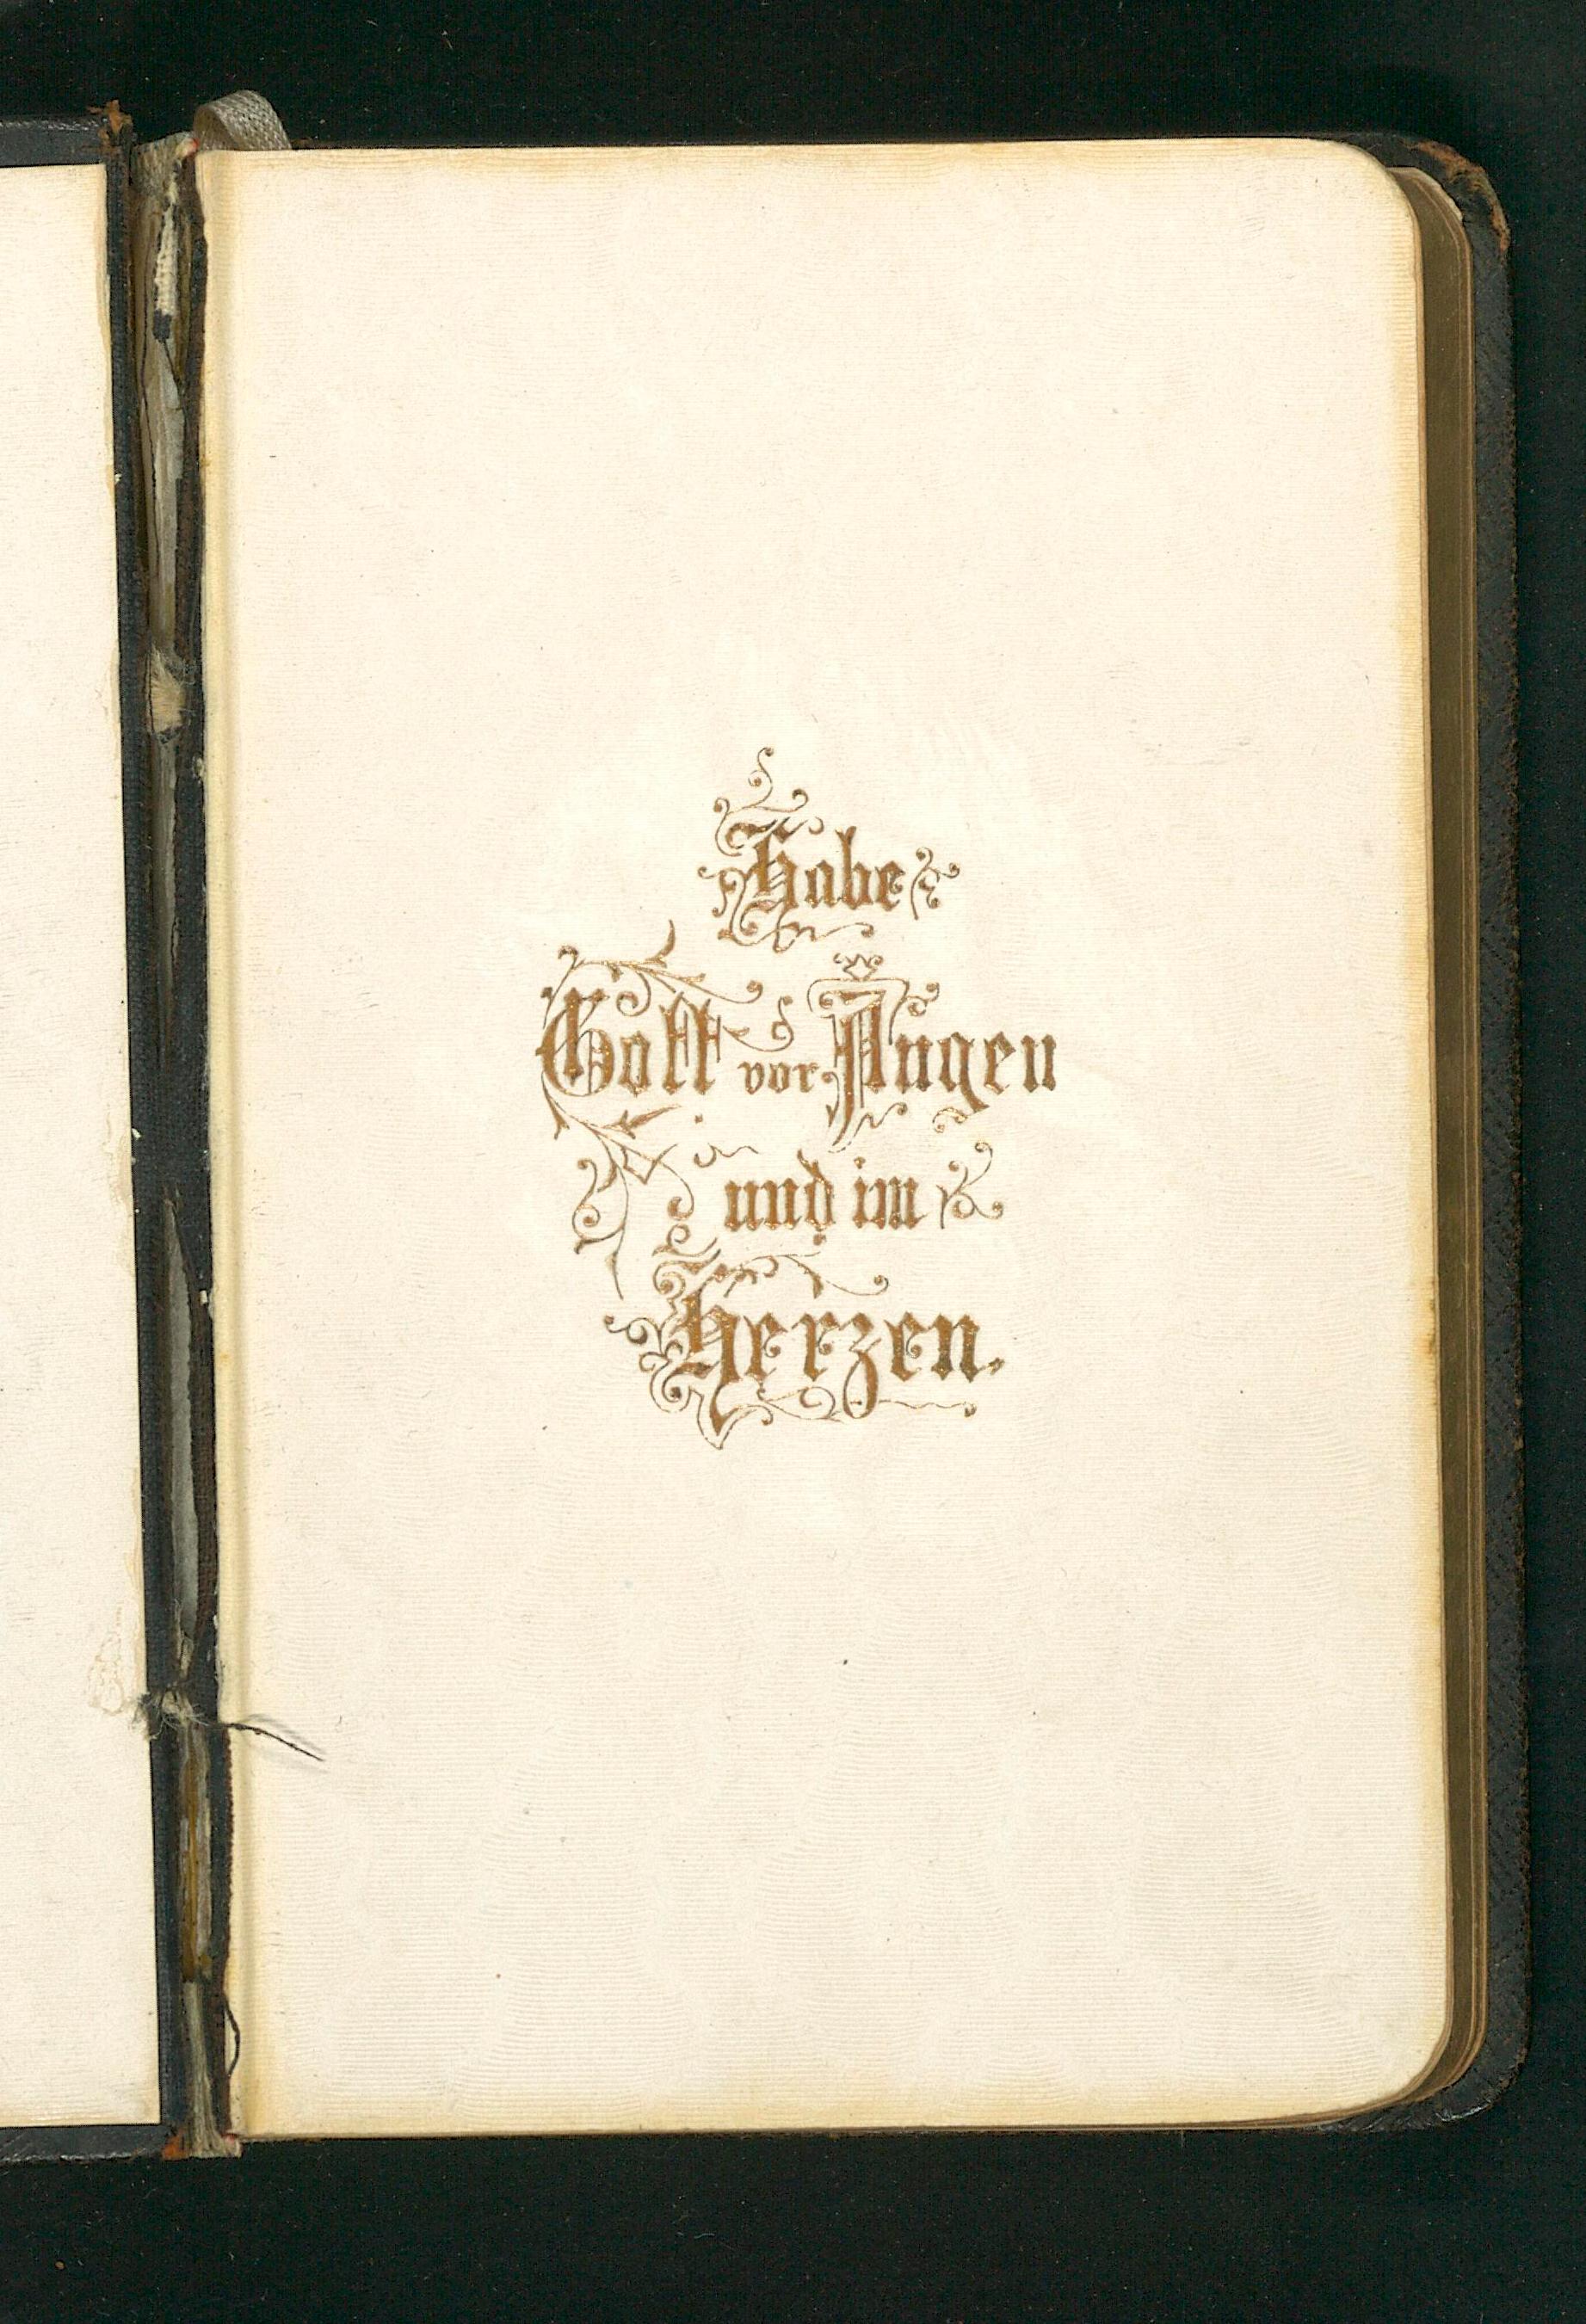 Habe
Gott vor Augen
und im
Herzen.